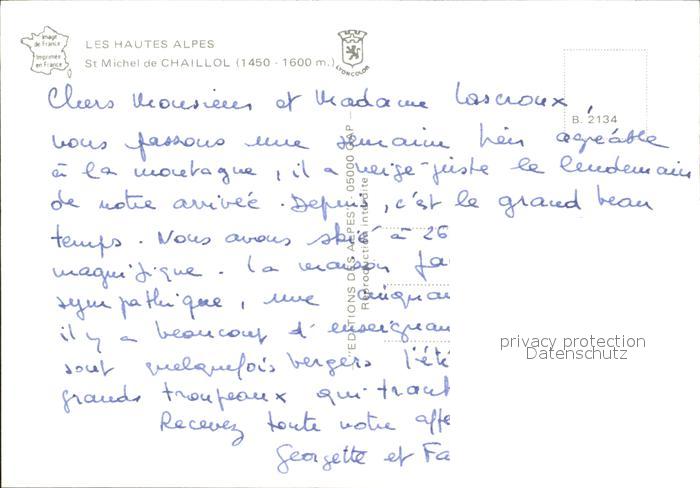 Image
de France
Imprimée
en France
LES HAUTES ALPES
St Michel de CHAILLOL (1450 - 1600 m.)
LYONCOLOR
B. 2134
EDITIONS DES ALPES - 05000 GAP
Reproduction interdite
Chers Monsieur et Madame Lascroux,
nous passons une semaine très agréable
à la montagne, il a neigé juste le lendemain
de notre arrivée. Depuis, c'est le grand beau
temps. Nous avons skié à 26
magnifique. La maison fa
sympathique, une cinquan
il y a beaucoup d'enseignan
sont quelquefois bergers l'été
grands troupeaux qui tran
Recevez toute notre affe
Georgette et Fa
privacy protection
Datenschutz